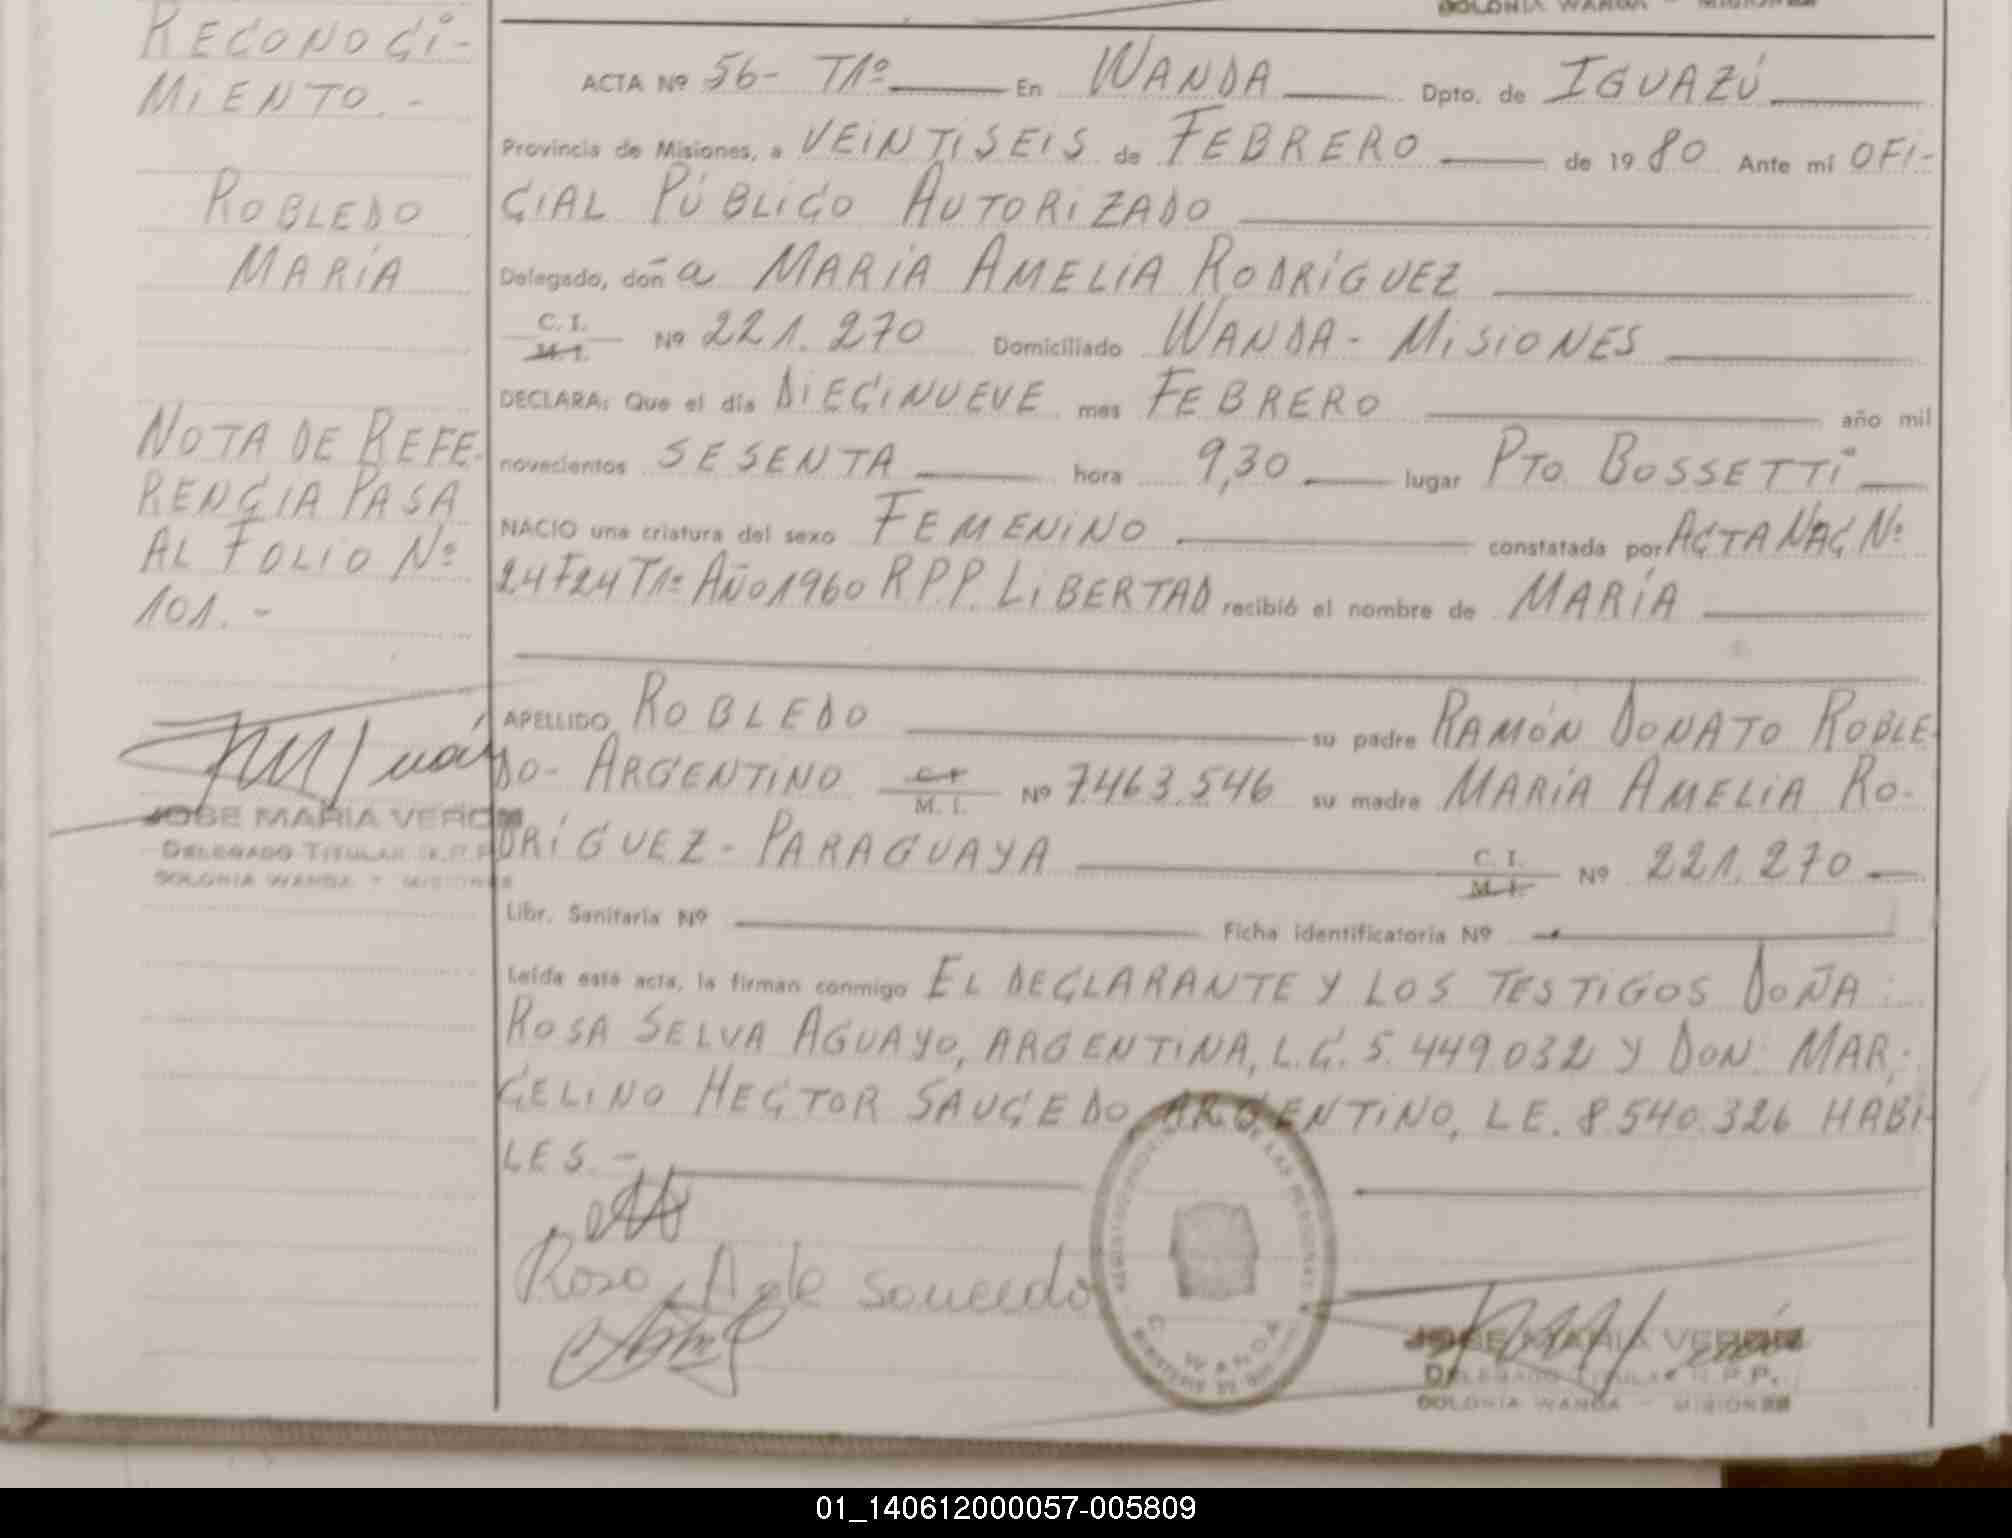 COLONIA WANDA - MISIONES
RECONOCI-
MIENTO.-
ROBLEDO
MARÍA
NOTA DE REFE-
RENCIA PASA
AL FOLIO Nº
101.-
JOSE MARIA VERON
DELEGADO TITULAR R.P.P.
COLONIA WANDA - MISIONES
ACTA Nº 56- T1º En WANDA Dpto. de IGUAZÚ
Provincia de Misiones, a VEINTISEIS de FEBRERO de 1980 Ante mí OFI-
CIAL PÚBLICO AUTORIZADO
Delegado, doña MARÍA AMELIA RODRÍGUEZ
C. I.
M. I. Nº 221.270 Domiciliado WANDA - MISIONES
DECLARA: Que el día DIECINUEVE mes FEBRERO año mil
novecientos SESENTA hora 9,30 lugar PTO BOSSETTI
NACIO una criatura del sexo FEMENINO constatada por ACTA NAC Nº
24 F24 T1º AÑO 1960 R.P.P. LIBERTAD recibió el nombre de MARÍA
APELLIDO ROBLEDO su padre RAMÓN DONATO ROBLE-
DO- ARGENTINO C. I. M. I. Nº 7.463.546 su madre MARÍA AMELIA RO-
DRÍGUEZ - PARAGUAYA C. I. M. I. Nº 221.270
Libr. Sanitaria Nº Ficha identificatoria Nº
Leída esta acta, la firman conmigo EL DECLARANTE Y LOS TESTIGOS DOÑA:
ROSA SELVA AGUAYO, ARGENTINA, L.C. 5.449.032 Y DON MAR-
CELINO HECTOR SAUCEDO, ARGENTINO, L.E. 8.540.326 HABI-
LES.-
Rosa A de Saucedo
DE LAS PERSONAS
C. WANDA
JOSE MARIA VERON
DELEGADO TITULAR R.P.P.
COLONIA WANDA - MISIONES
01_140612000057-005809